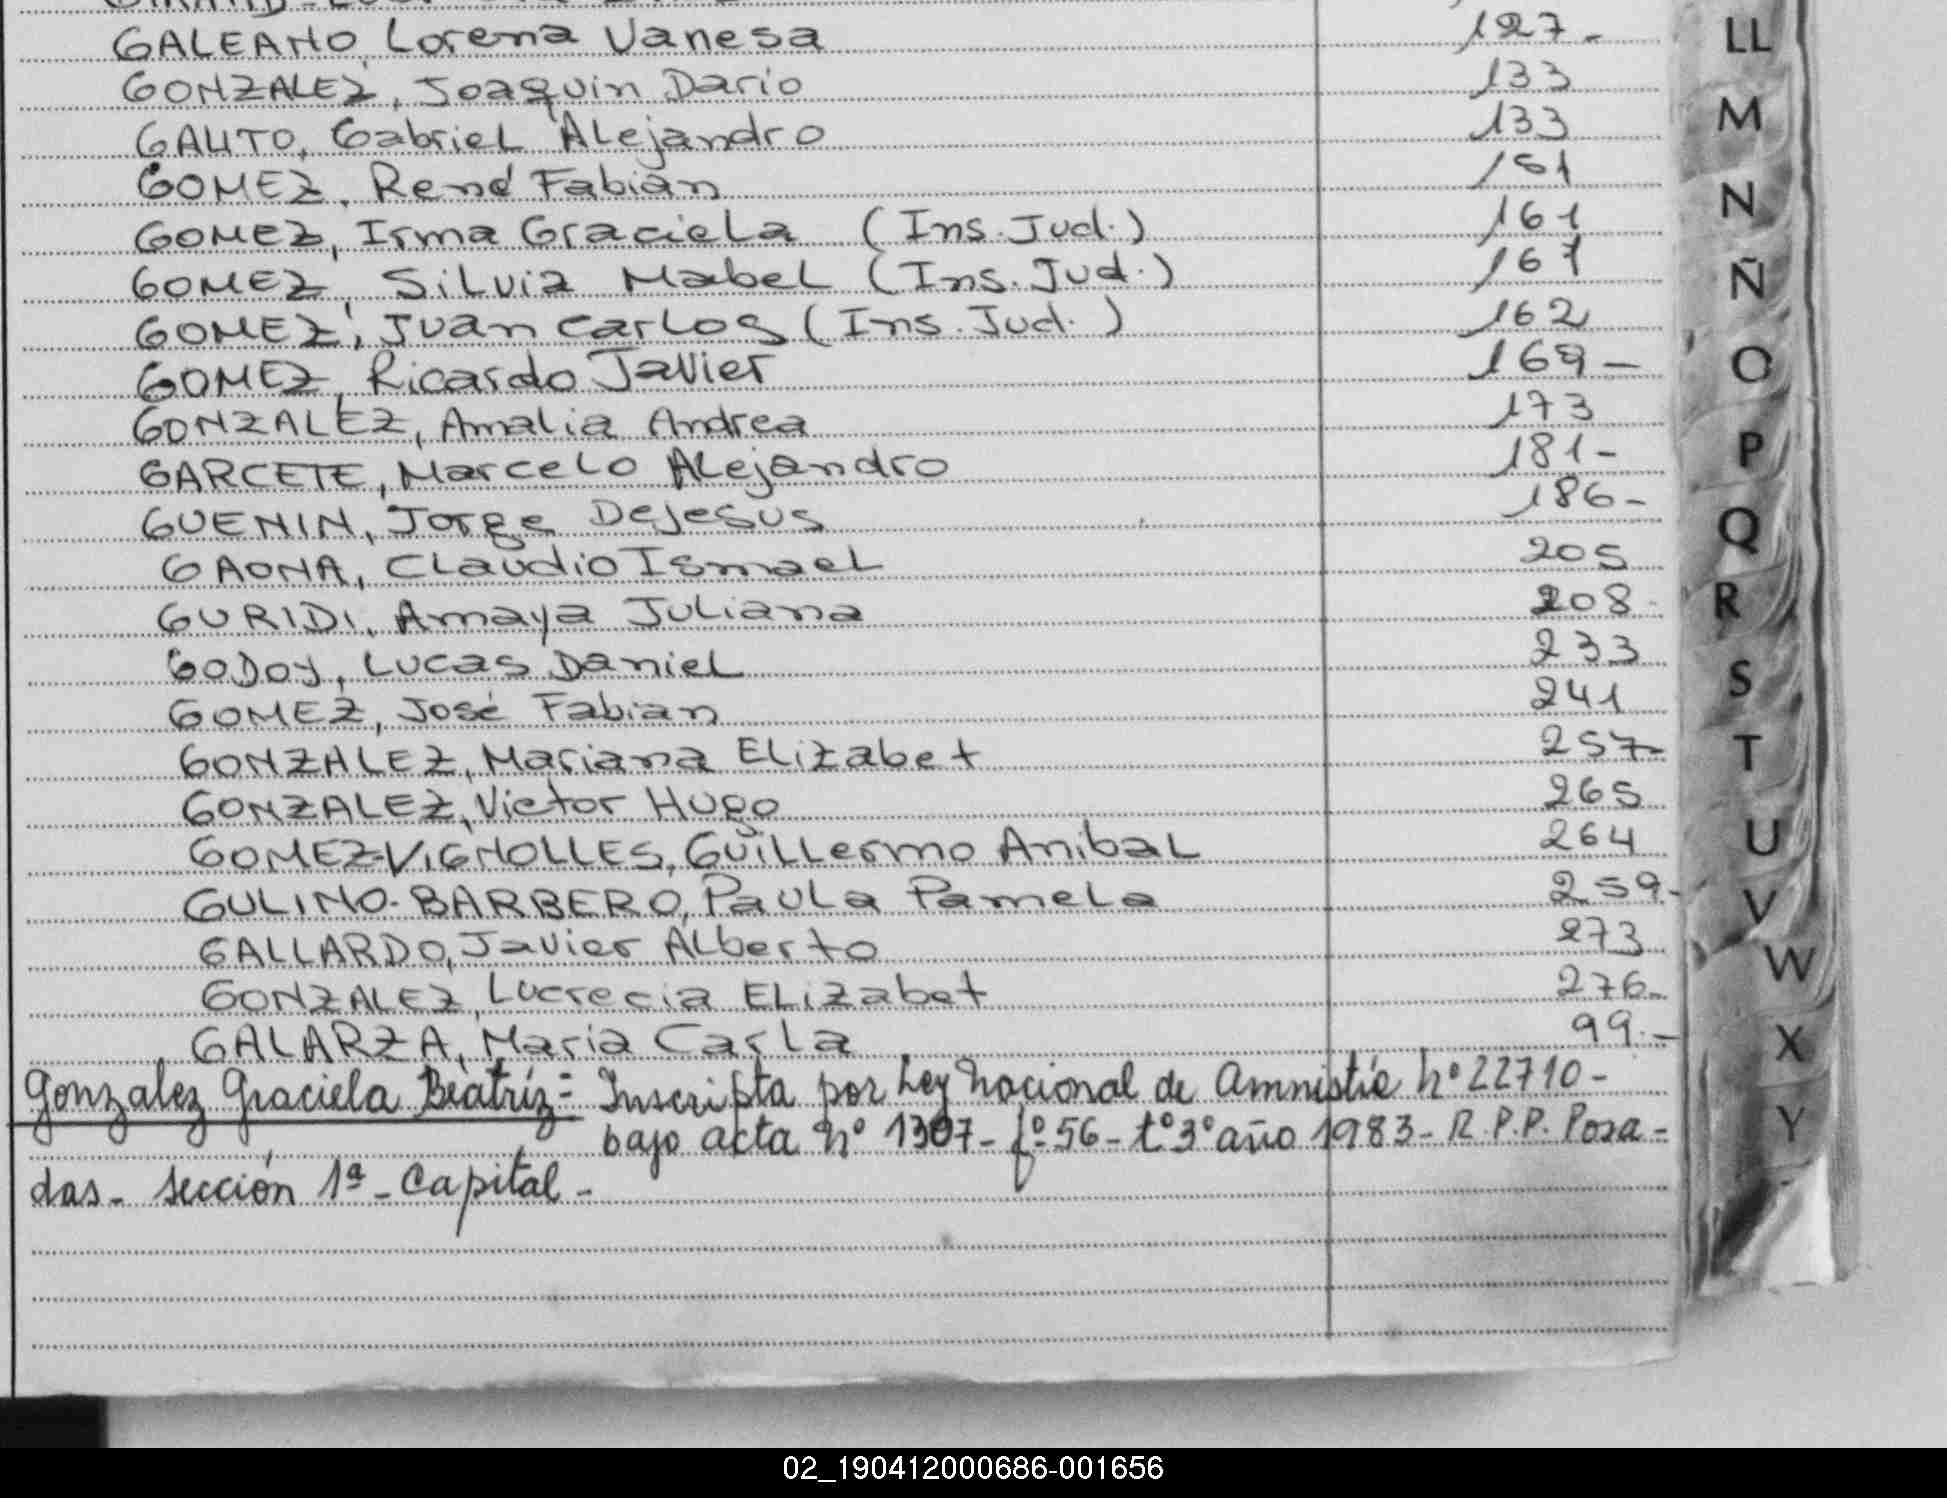 GALEANO, Lorena Vanesa 127-
GONZALEZ, Joaquin Dario 133
GAUTO, Gabriel Alejandro 133
GOMEZ, René Fabian 151
GOMEZ, Irma Graciela (Ins. Jud.) 161
GOMEZ, Silvia Mabel (Ins. Jud.) 161
GOMEZ, Juan Carlos (Ins. Jud.) 162
GOMEZ, Ricardo Javier 169-
GONZALEZ, Amalia Andrea 173
GARCETE, Marcelo Alejandro 181-
GUENIN, Jorge DeJesus 186-
GAONA, Claudio Ismael 205
GURIDI, Amaya Juliana 208-
GODOY, Lucas Daniel 233
GOMEZ, José Fabian 241
GONZALEZ, Mariana Elizabet 257-
GONZALEZ, Victor Hugo 265
GOMEZ-VIGNOLLES, Guillermo Anibal 264
GULINO-BARBERO, Paula Pamela 259-
GALLARDO, Javier Alberto 273
GONZALEZ, Lucrecia Elizabet 276-
GALARZA, Maria Carla 99.-
Gonzalez Graciela Beatriz = Inscripta por Ley Nacional de Amnistía nº 22710-
bajo acta nº 1307- fº 56- tº 3º año 1983- R.P.P. Posa-
das- Sección 1ª- Capital-
LL
M
N
Ñ
O
P
Q
R
S
T
U
V
W
X
Y
02_190412000686-001656